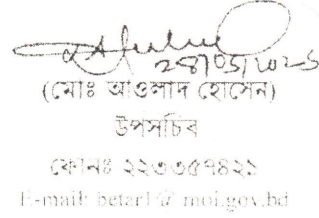 (মোঃ আওলাদ হোসেন)
উপসচিব
ফোনঃ ২২৩৩৫৭৪২১
E-mail: betar1@moi.gov.bd